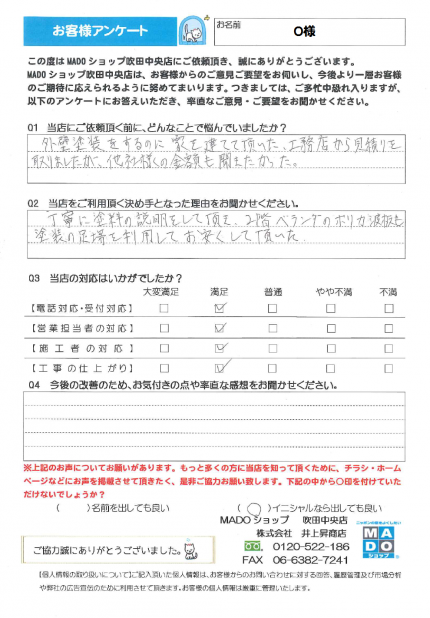 お客様アンケート
お名前
O様
この度は MADO ショップ吹田中央店にご依頼頂き、誠にありがとうございます。
MADO ショップ吹田中央店は、お客様からのご意見ご要望をお伺いし、今後より一層お客様
のご期待に応えられるように努めてまいります。つきましては、ご多忙中恐れ入りますが、
以下のアンケートにお答えいただき、率直なご意見・ご要望をお聞かせください。
Q1 当店にご依頼頂く前に、どんなことで悩んでいましたか?
外壁塗装をするのに家を建てて頂いた、工務店から見積りを
取りましたが、他社様くの金額も聞きたかった。
Q2 当店をご利用頂く決め手となった理由をお聞かせください。
丁寧に塗料の説明をして頂き、2階ベランダのポリカ波板も
塗装の足場を利用してお安くして頂いた
Q3 当店の対応はいかがでしたか?
大変満足 満足 普通 やや不満 不満
【電話対応・受付対応】 □ ☑ □ □ □
【営業担当者の対応】 □ ☑ □ □ □
【施工者の対応】 □ ☑ □ □ □
【工事の仕上がり】 □ ☑ □ □ □
Q4 今後の改善のため、お気付きの点や率直な感想をお聞かせください。
※上記のお声についてお願いがあります。もっと多くの方に当店を知って頂くために、チラシ・ホーム
ページなどにお声を掲載させて頂きたく、是非ご協力お願い致します。下記の中から〇印を付けていた
だけないでしょうか?
( )名前を出しても良い (〇)イニシャルなら出しても良い
MADO ショップ 吹田中央店
株式会社 井上昇商店
0120-522-186
FAX 06-6382-7241
MADO
ショップ
ご協力誠にありがとうございました。
【個人情報の取り扱いについて】ご記入頂いた個人情報は、お客様からのお問い合わせに対する回答、履歴管理及び市場分析
や弊社の広告宣伝のために利用させて頂きます。お客様の個人情報は厳重に管理いたします。